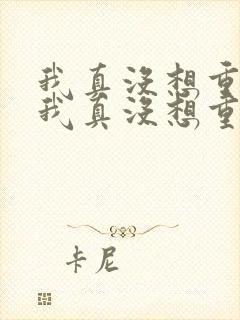 我真没想重
我真没想重
卡尼